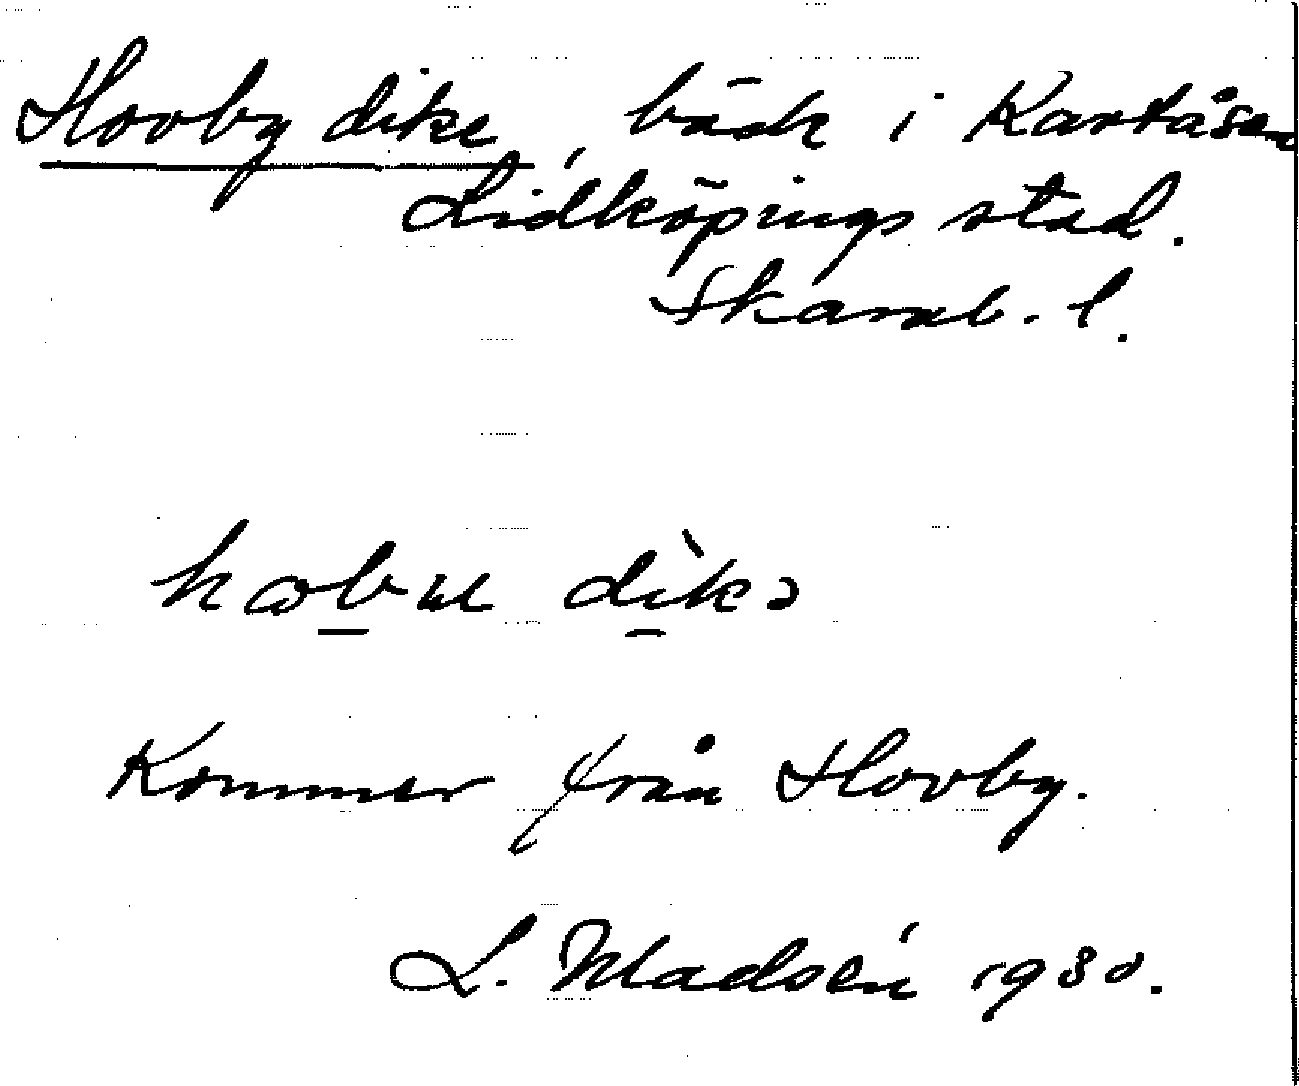 Hovby dike, bäck i Kartåsen
Lidköpings stad.
Skarab. l.
dìkə
Kommer från Hovby.
L. Madsén 1930.